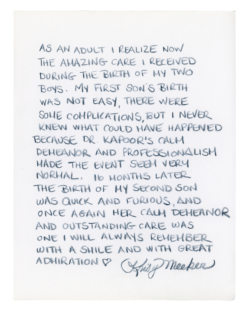 AS AN ADULT I REALIZE NOW
THE AMAZING CARE I RECEIVED
DURING THE BIRTH OF MY TWO
BOYS. MY FIRST SON'S BIRTH
WAS NOT EASY, THERE WERE
SOME COMPLICATIONS, BUT I NEVER
KNEW WHAT COULD HAVE HAPPENED
BECAUSE DR KAPOOR'S CALM
DEMEANOR AND PROFESSIONALISM
MADE THE EVENT SEEM VERY
NORMAL. 16 MONTHS LATER
THE BIRTH OF MY SECOND SON
WAS QUICK AND FURIOUS, AND
ONCE AGAIN HER CALM DEMEANOR
AND OUTSTANDING CARE WAS
ONE I WILL ALWAYS REMEMBER
WITH A SMILE AND WITH GREAT
ADMIRATION ♡ Meeker